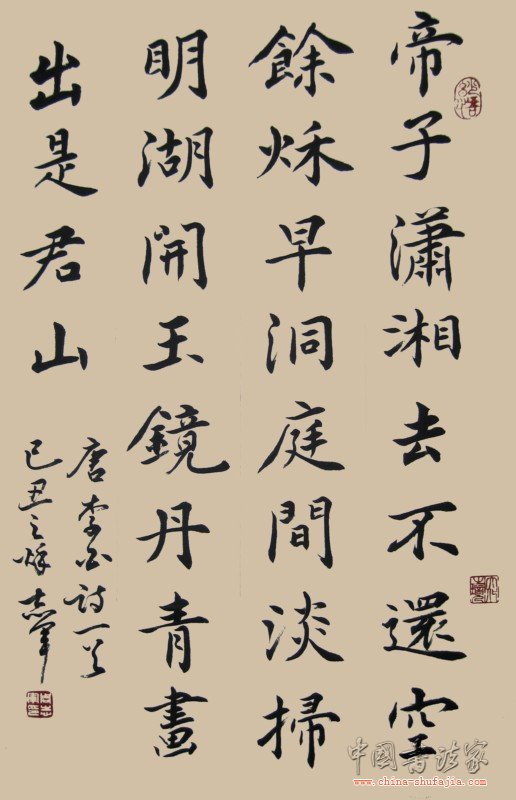 帝子瀟湘去不還空
餘秌早洞庭間淡掃
明湖開玉鏡丹青畫
出是君山
唐李白詩一首
己丑之秌志軍
中國書法家
www.china-shufajia.com